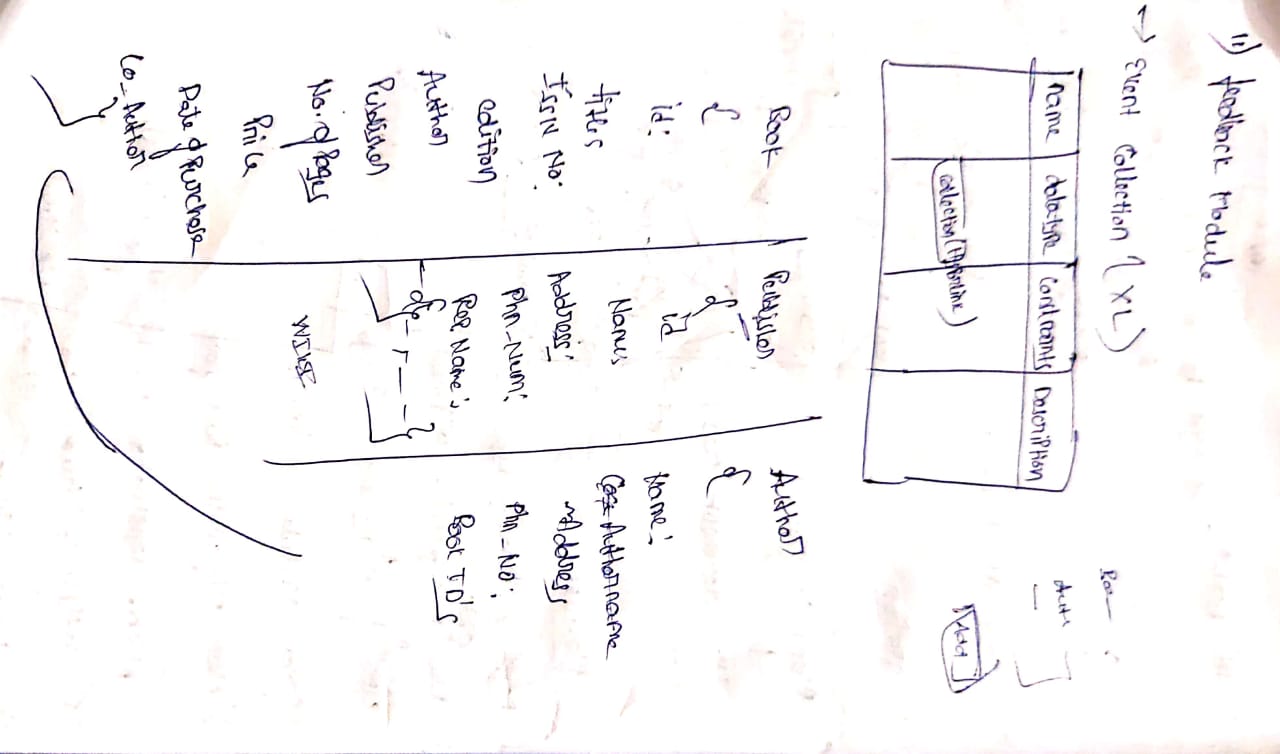 11) feedback Module
→ Event Collection (X L)
name datatype Constraints Description
Book
{
id:
titles
ISSN No:
edition
Author
Publisher
No. of Pages
Price
Date of Purchase
Co_Author
}
Publisher
{
id
Names
Address:
Phn_Num:
Rep Name:
Author
{
Name:
Author name
Address
Phn_No:
Book ID's
Add